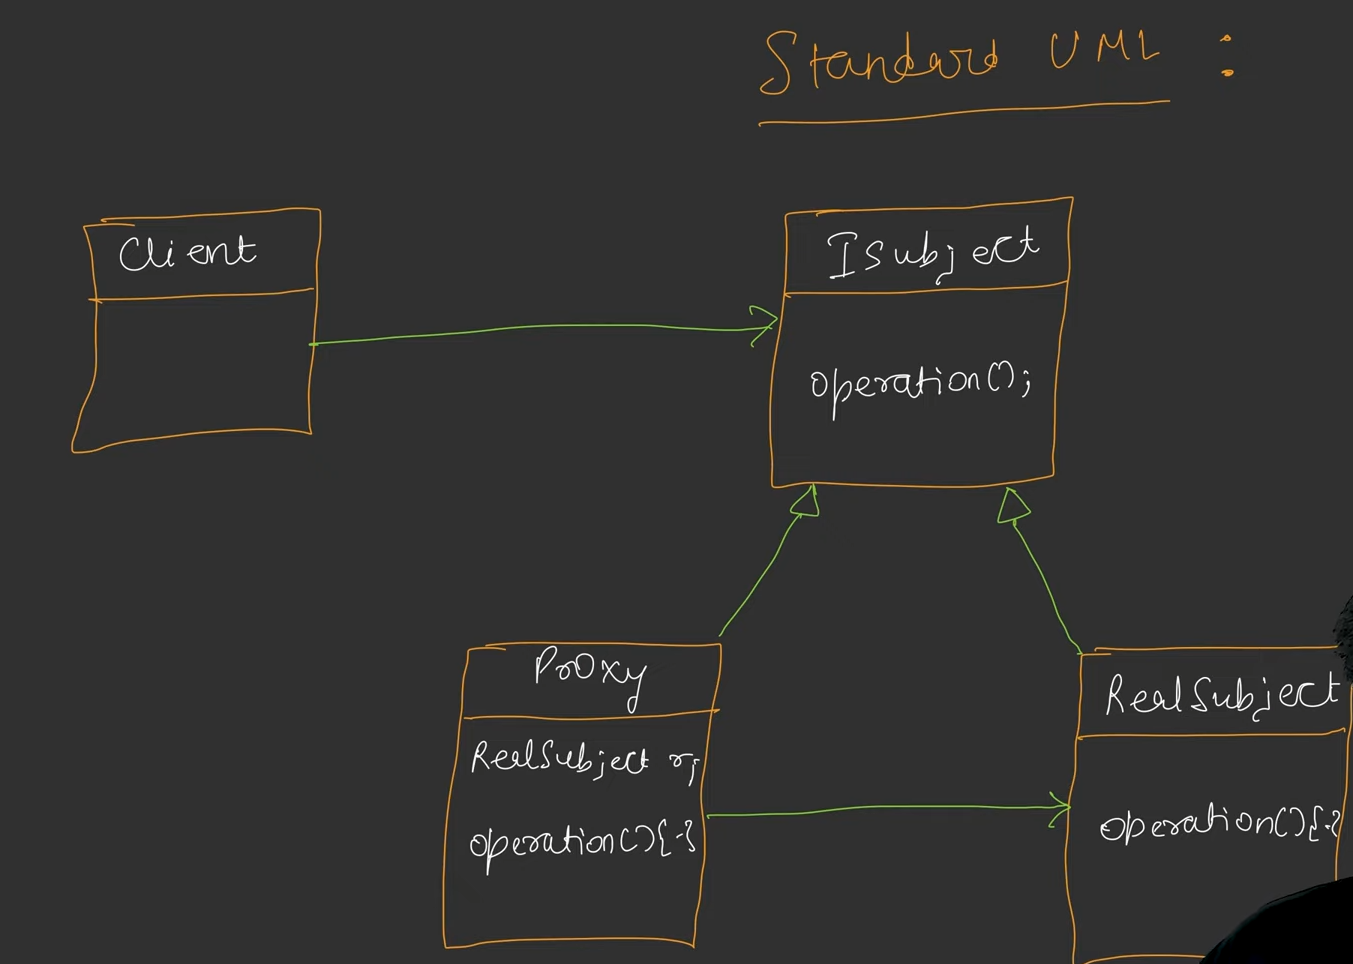 Standard UML :
Client
Isubject
operation();
Proxy
RealSubject r;
operation(){-}
RealSubject
operation(){-}